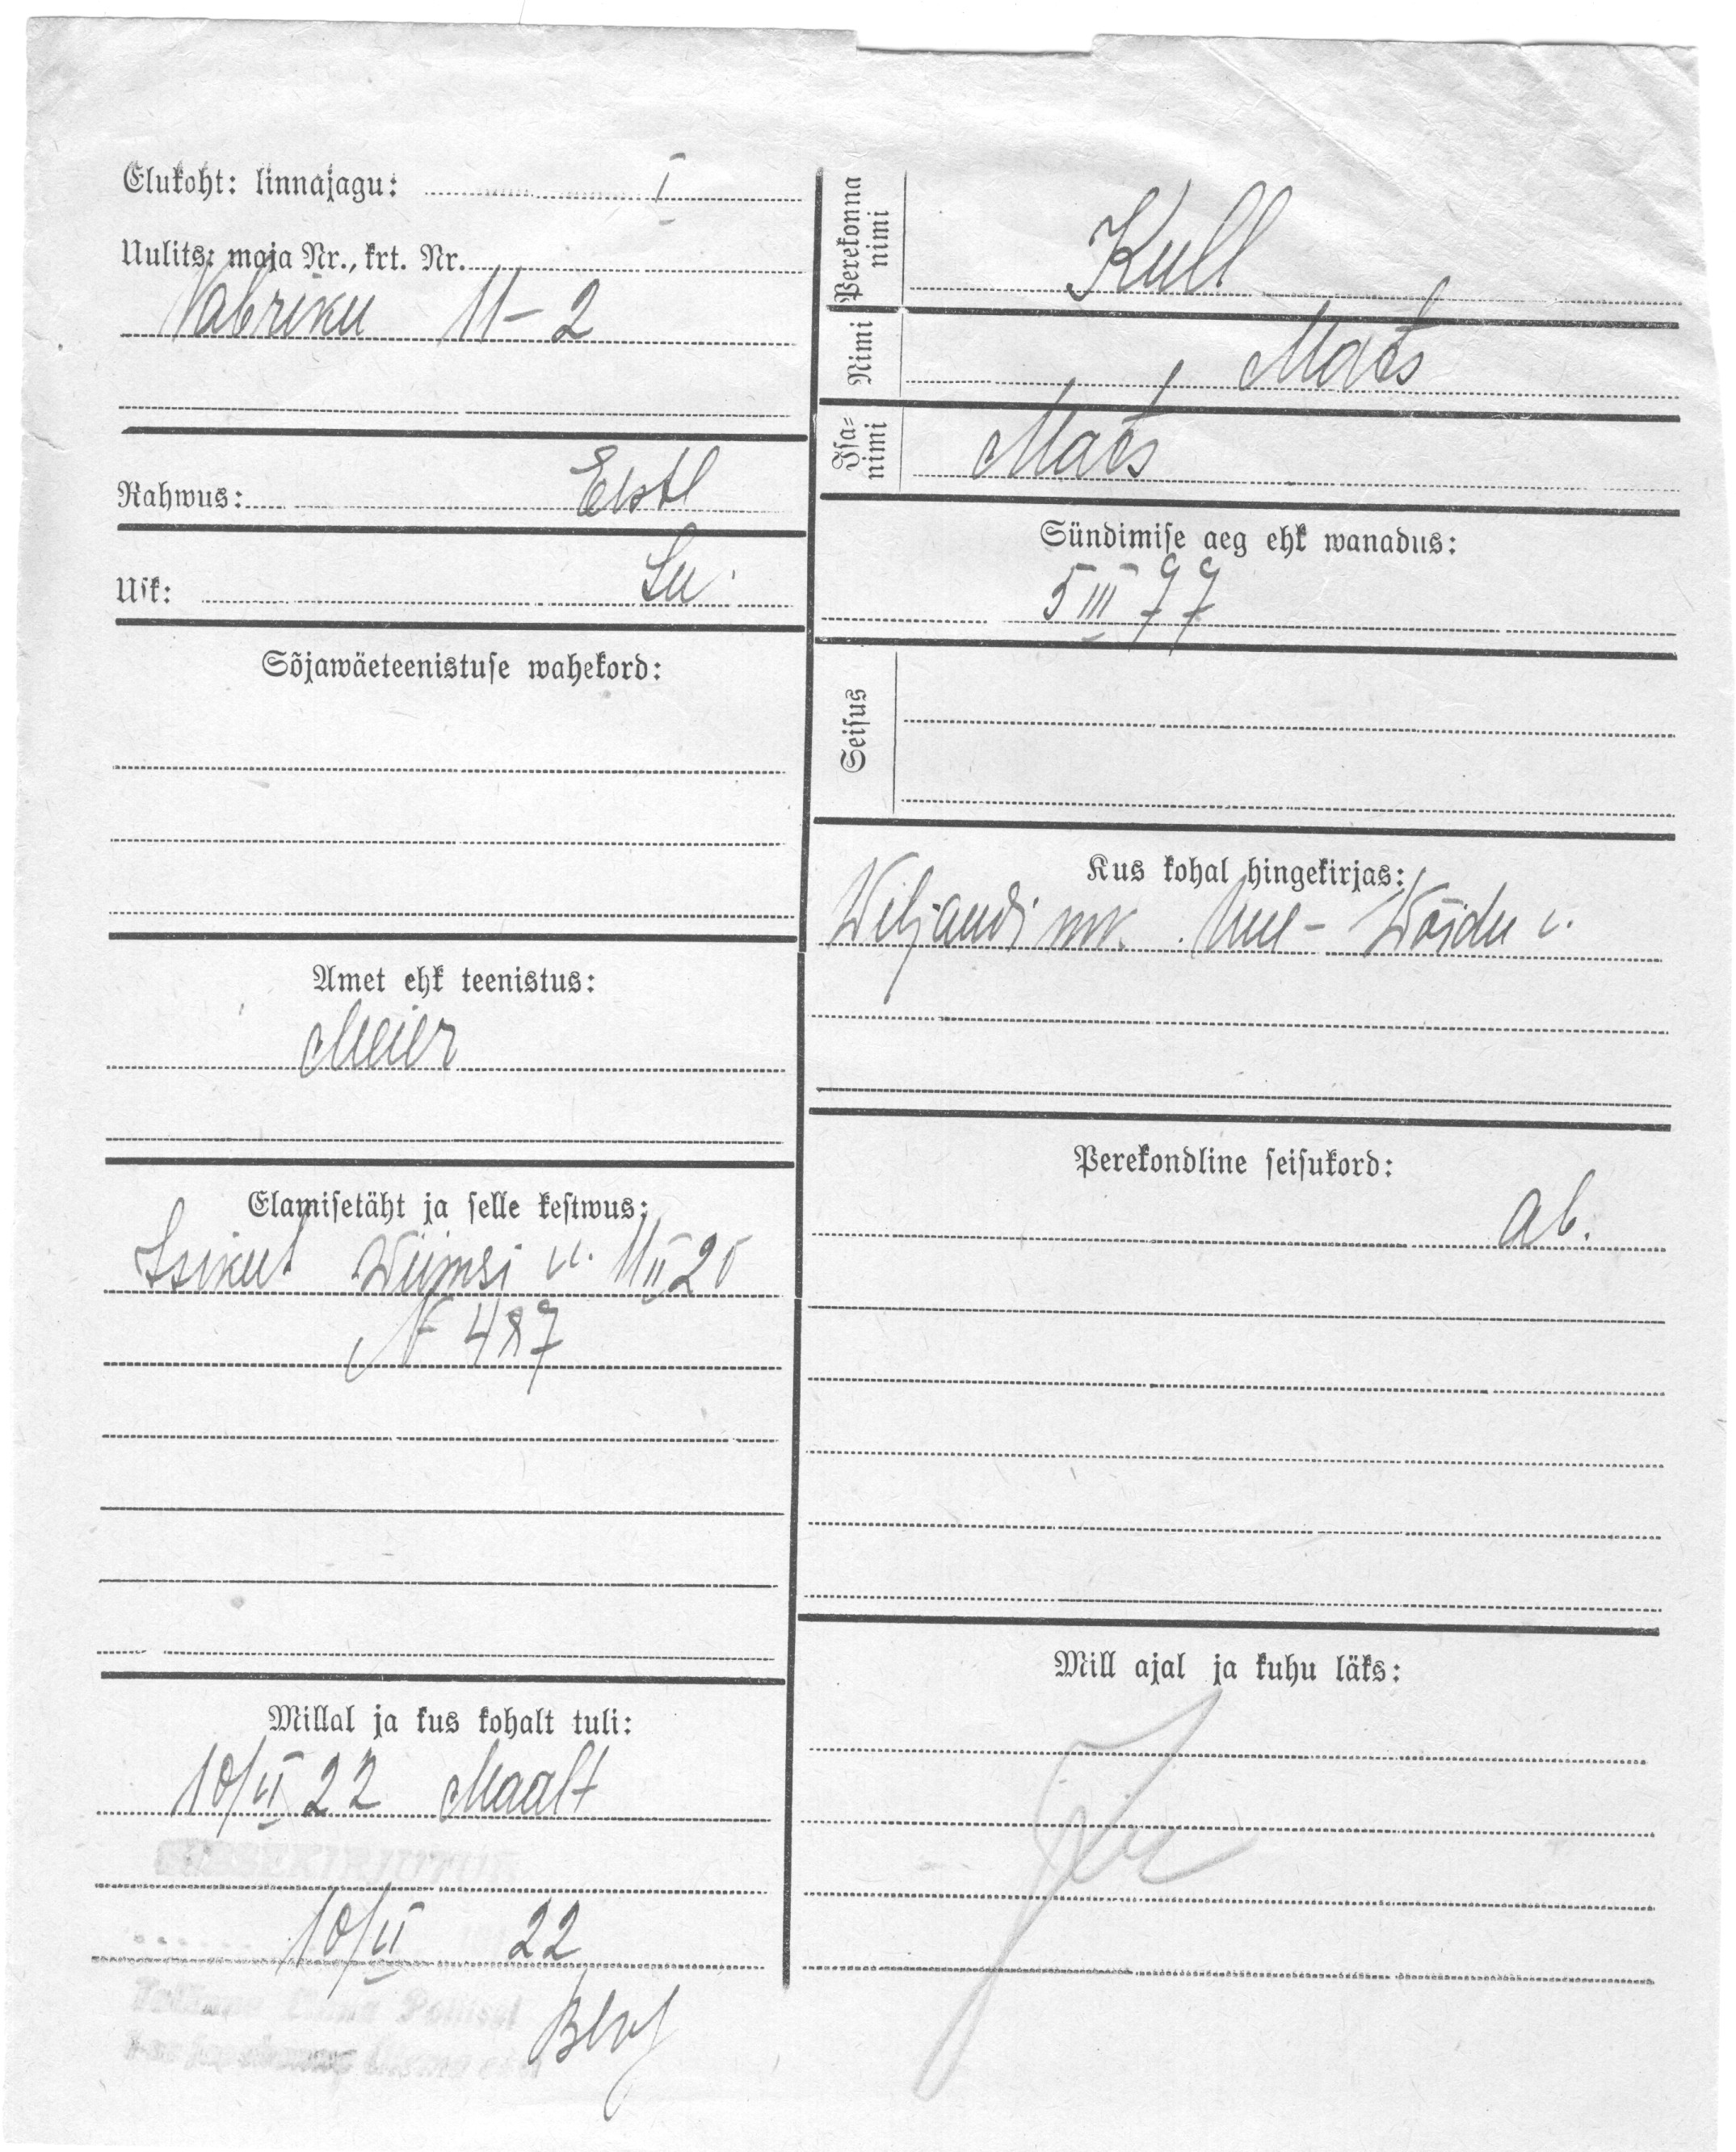 Elukoht: linnajagu: I
Uulits: maja Nr., krt. Nr.
Vabriku 11-2
Rahwus: Eestl
Usk: Lu.
Sõjawäeteenistuse wahekord:
Amet ehk teenistus:
Meier
Elamisetäht ja selle kestwus:
Isikut Wiimsi v. 11 II 20
№ 487
Millal ja kus kohalt tuli:
10/II 22 Maalt
SISSEKIRJUTUD
10/II 22
Tallinna Linna Politsei
Perekonna nimi
Kull
Nimi
Mats
Isa-nimi
Mats
Sündimise aeg ehk wanadus:
5 III 77
Seisus
Kus kohal hingekirjas:
Wiljandi mk. Uue-Wõidu v.
Perekondline seisukord:
ab.
Mill ajal ja kuhu läks: